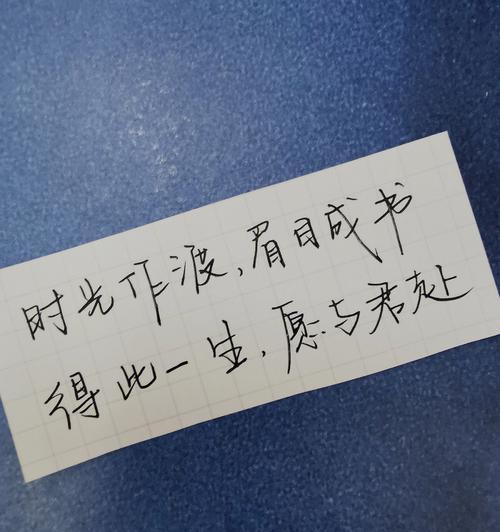 时光作渡,眉目成书
得此一生,愿与君处